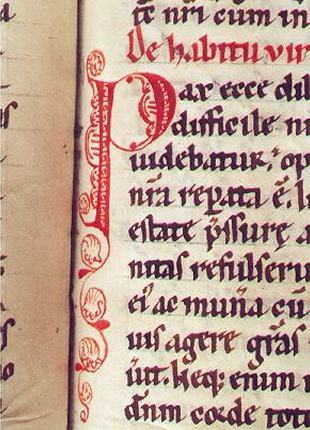 te nr̄i cum in
De habitu vir
Pax ecce dil
difficile n
uidebatur. op
nr̄a repata ē. I
estate p̄ssurę a
nitas refulseru
ei᾽ ac mun̄a cū
uis agere gr̄as
ūt. Neq; enum
dn̄m corde toto